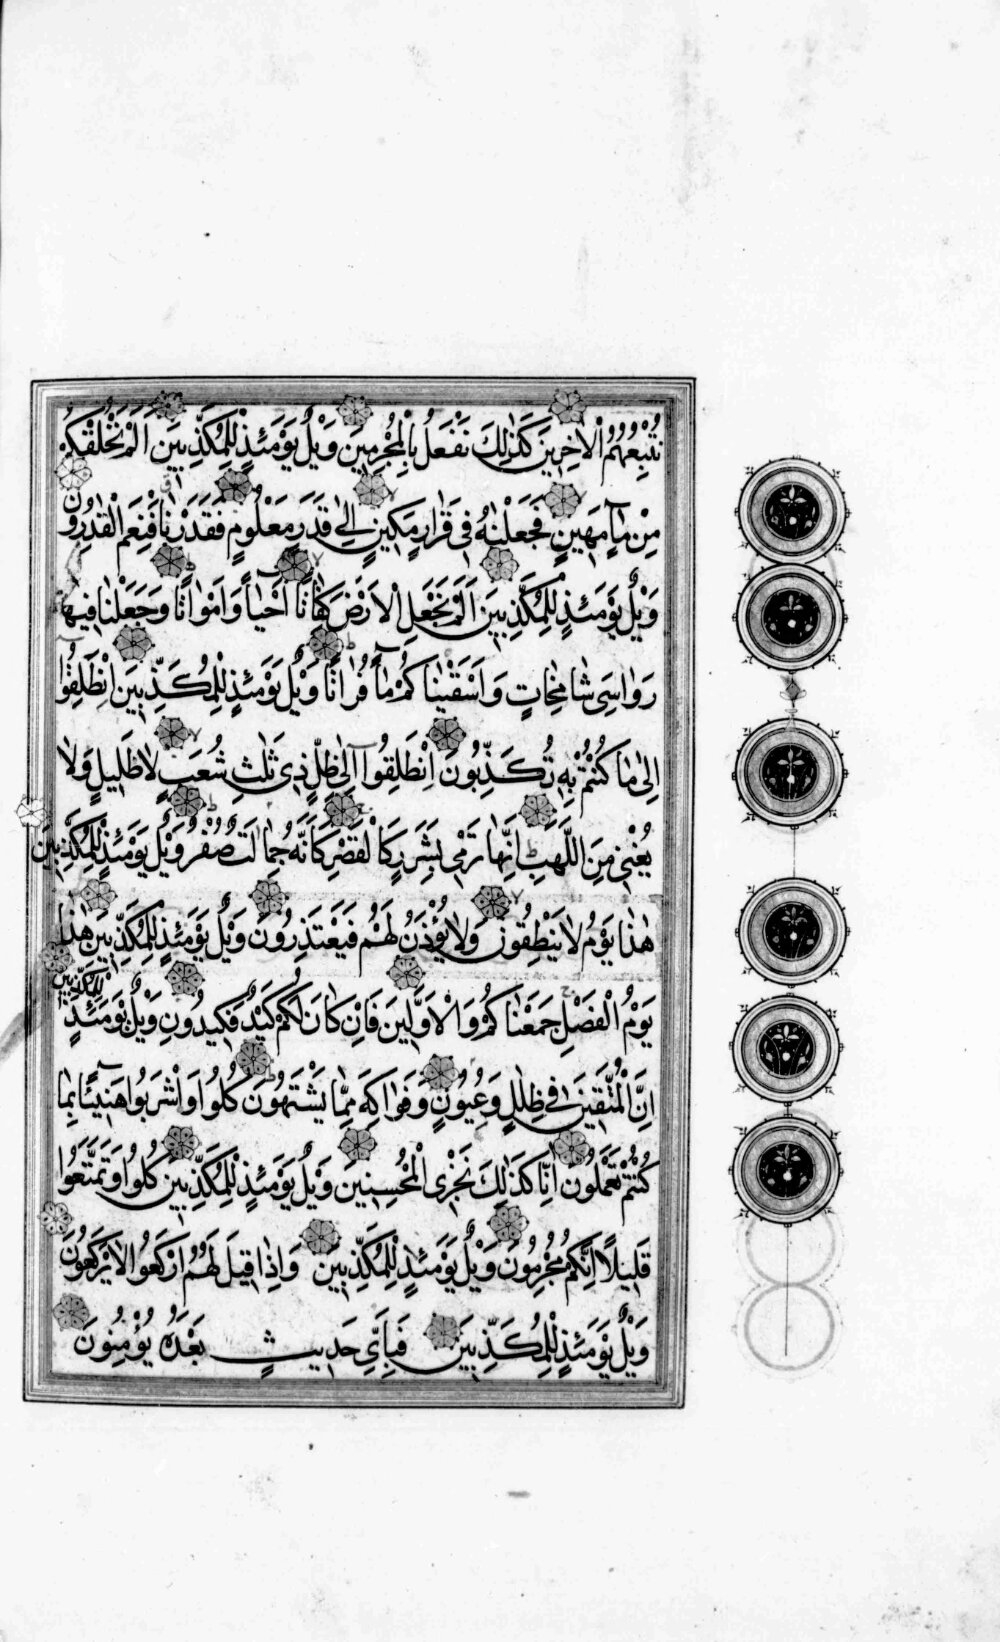 نُتْبِعُهُمُ الْاٰخِرِينَ كَذٰلِكَ نَفْعَلُ بِالْمُجْرِمِينَ وَيْلٌ يَوْمَئِذٍ لِلْمُكَذِّبِينَ اَلَمْ نَخْلُقْكُمْ
مِنْ مَاءٍ مَهِينٍ فَجَعَلْنٰهُ فِى قَرَارٍ مَكِينٍ اِلٰى قَدَرٍ مَعْلُومٍ فَقَدَرْنَا فَنِعْمَ الْقٰدِرُونَ
وَيْلٌ يَوْمَئِذٍ لِلْمُكَذِّبِينَ اَلَمْ نَجْعَلِ الْاَرْضَ كِفَاتًا اَحْيَاءً وَاَمْوَاتًا وَجَعَلْنَا فِيهَا
رَوَاسِىَ شَامِخَاتٍ وَاَسْقَيْنَاكُمْ مَاءً فُرَاتًا وَيْلٌ يَوْمَئِذٍ لِلْمُكَذِّبِينَ اِنْطَلِقُوا
اِلٰى مَا كُنْتُمْ بِهِ تُكَذِّبُونَ اِنْطَلِقُوا اِلٰى ظِلٍّ ذِى ثَلٰثِ شُعَبٍ لَا ظَلِيلٍ وَلَا
يُغْنِى مِنَ اللَّهَبِ اِنَّهَا تَرْمِى بِشَرَرٍ كَالْقَصْرِ كَاَنَّهُ جِمَالَتٌ صُفْرٌ وَيْلٌ يَوْمَئِذٍ لِلْمُكَذِّبِينَ
هٰذَا يَوْمُ لَا يَنْطِقُونَ وَلَا يُؤْذَنُ لَهُمْ فَيَعْتَذِرُونَ وَيْلٌ يَوْمَئِذٍ لِلْمُكَذِّبِينَ هٰذَا
يَوْمُ الْفَصْلِ جَمَعْنَاكُمْ وَالْاَوَّلِينَ فَاِنْ كَانَ لَكُمْ كَيْدٌ فَكِيدُونِ وَيْلٌ يَوْمَئِذٍ لِلْمُكَذِّبِينَ
اِنَّ الْمُتَّقِينَ فِى ظِلٰلٍ وَعُيُونٍ وَفَوَاكِهَ مِمَّا يَشْتَهُونَ كُلُوا وَاشْرَبُوا هَنِيئًا بِمَا
كُنْتُمْ تَعْمَلُونَ اِنَّا كَذٰلِكَ نَجْزِى الْمُحْسِنِينَ وَيْلٌ يَوْمَئِذٍ لِلْمُكَذِّبِينَ كُلُوا وَتَمَتَّعُوا
قَلِيلًا اِنَّكُمْ مُجْرِمُونَ وَيْلٌ يَوْمَئِذٍ لِلْمُكَذِّبِينَ وَاِذَا قِيلَ لَهُمُ ارْكَعُوا لَا يَرْكَعُونَ
وَيْلٌ يَوْمَئِذٍ لِلْمُكَذِّبِينَ فَبِاَىِّ حَدِيثٍ بَعْدَهُ يُؤْمِنُونَ